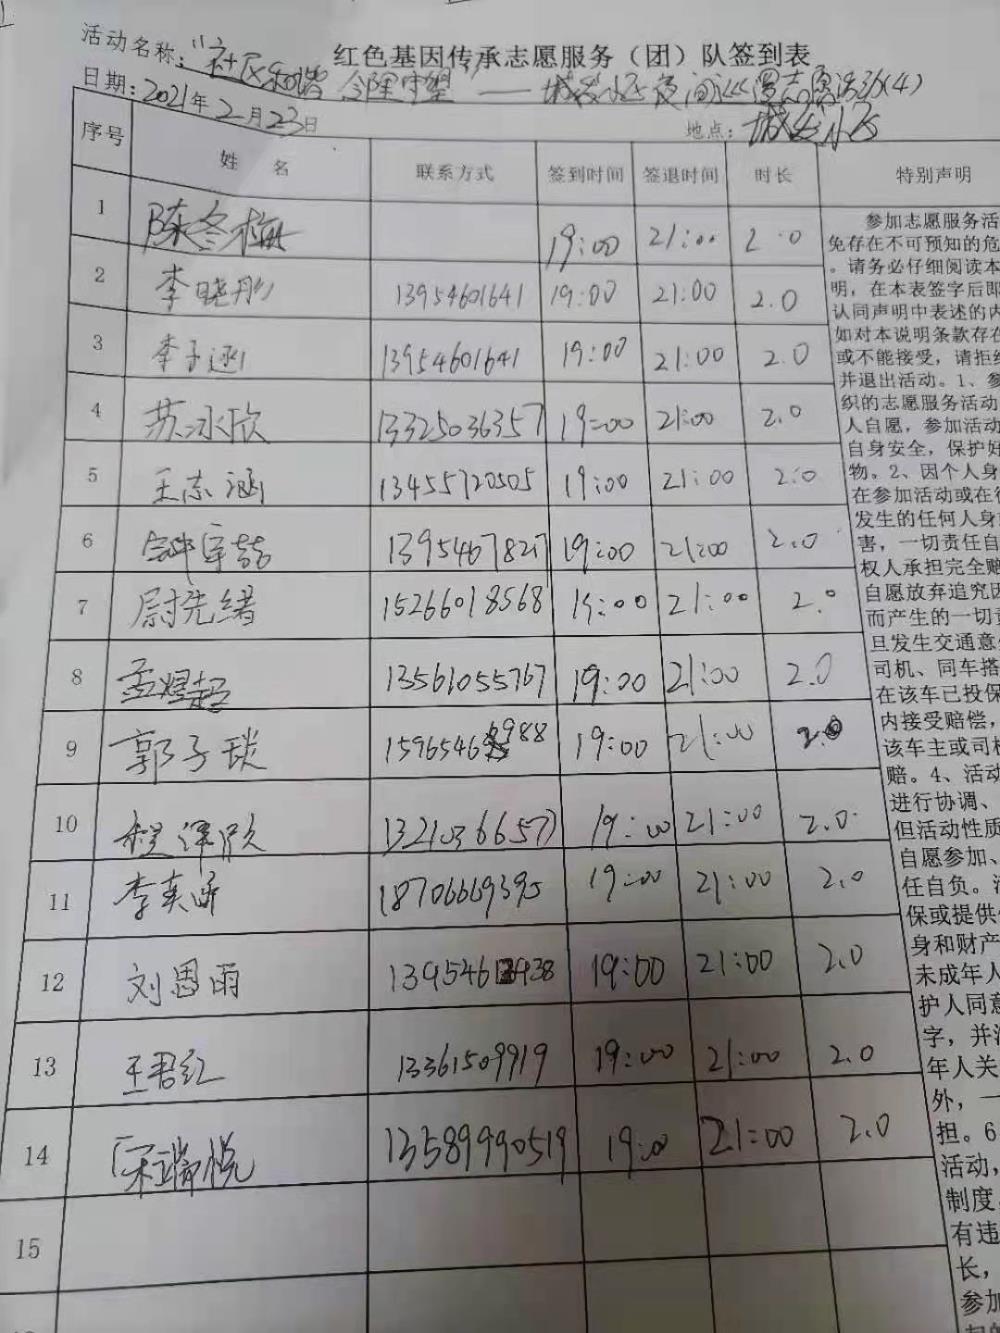 红色基因传承志愿服务（团）队签到表
活动名称："社区和谐 今隆守望"——城发小区夜间巡逻志愿活动(4)
日期：2021年2月23日
地点：城发小区
序号 姓名 联系方式 签到时间 签退时间 时长 特别声明
1 陈冬梅 19:00 21:00 2.0
2 李晓彤 13954601641 19:00 21:00 2.0
3 李子涵 13954601641 19:00 21:00 2.0
4 苏冰欣 13325036357 19:00 21:00 2.0
5 王志涵 13455720505 19:00 21:00 2.0
6 13954678217 19:00 21:00 2.0
7 尉先绪 15266018568 19:00 21:00 2.0
8 孟煜超 13561055767 19:00 21:00 2.0
9 郭子琰 19:00 21:00 2.0
10 程泽欣 13210366577 19:00 21:00 2.0
11 李奕 18706669395 19:00 21:00 2.0
12 刘恩雨 19:00 21:00 2.0
13 王君红 13361509919 19:00 21:00 2.0
14 宋瑞悦 13589990519 19:00 21:00 2.0
15
参加志愿服务活
免存在不可预知的危
。请务必仔细阅读本
明，在本表签字后即
认同声明中表述的内
如对本说明条款存在
或不能接受，请拒绝
并退出活动。1、参
织的志愿服务活动
人自愿，参加活动
自身安全，保护好
物。2、因个人身
在参加活动或在往
发生的任何人身
害，一切责任自
权人承担完全赔
自愿放弃追究因
而产生的一切责
旦发生交通意
司机、同车搭
在该车已投保
内接受赔偿，
该车主或司机
赔。4、活动
进行协调、
但活动性质
自愿参加、
任自负。活
保或提供
身和财产
未成年人
护人同意
字，并
年人关
外，一
担。6
活动，
制度
有违
长，
参加